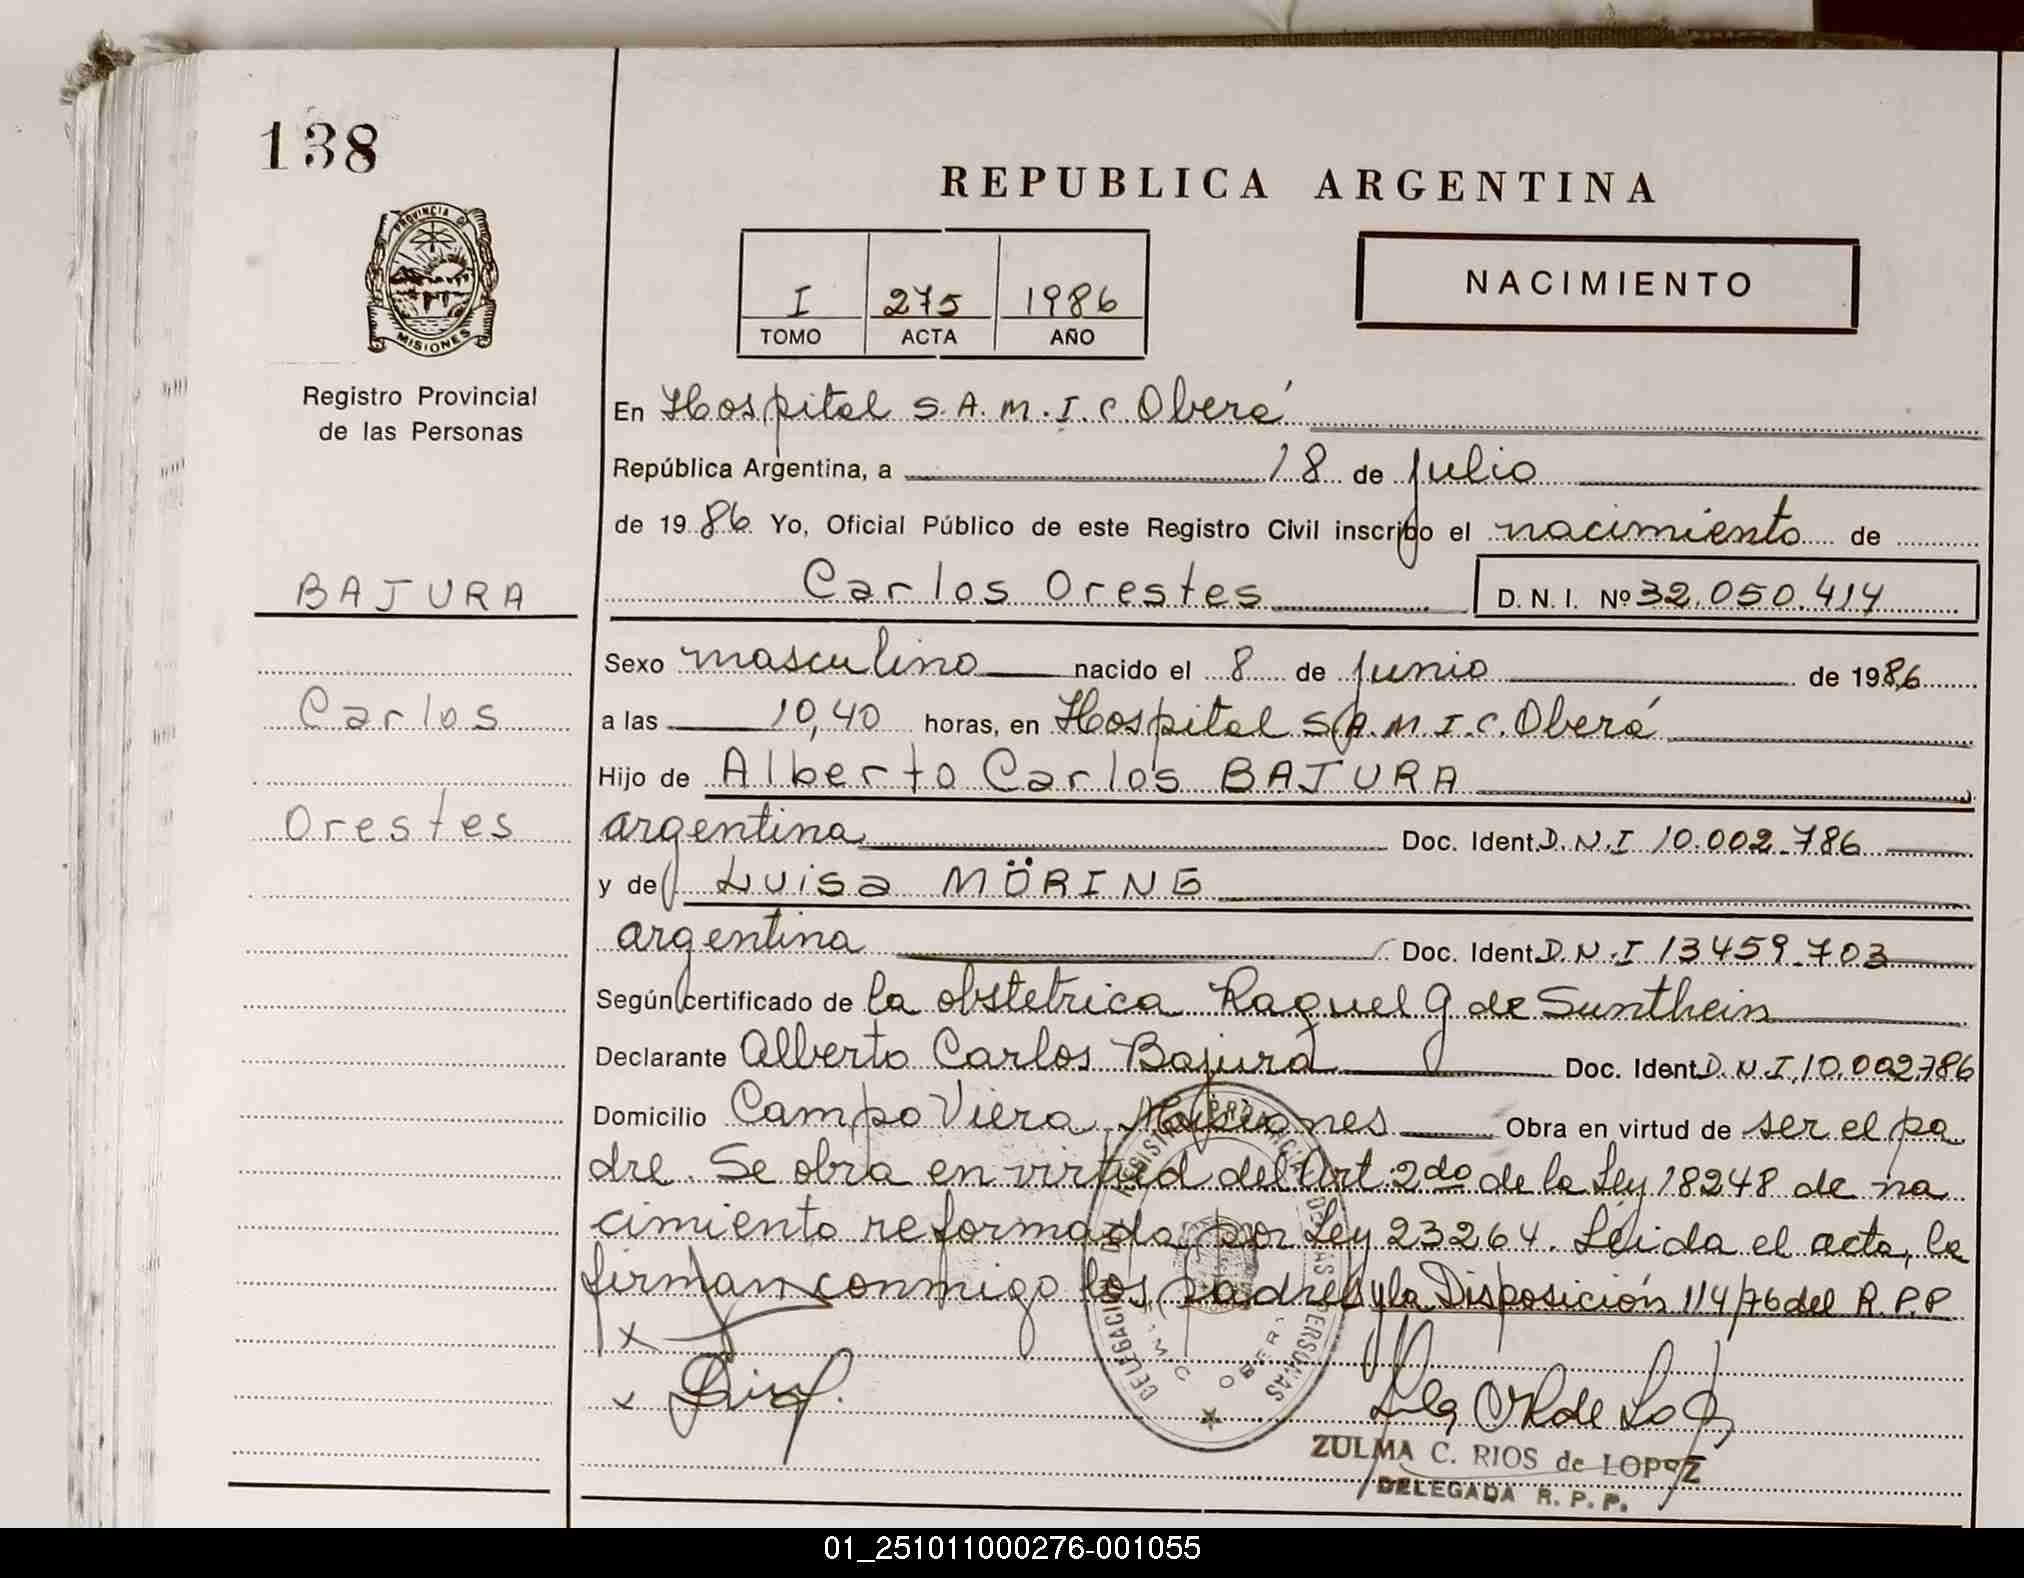 138
REPUBLICA ARGENTINA
PROVINCIA DE
MISIONES
I 275 1986
TOMO ACTA AÑO
NACIMIENTO
Registro Provincial
de las Personas
En Hospital S.A.M.I.C. Oberá
República Argentina, a 18 de julio
de 1986 Yo, Oficial Público de este Registro Civil inscribo el nacimiento de
BAJURA
Carlos Orestes D. N. I. Nº 32.050.414
Sexo masculino nacido el 8 de junio de 1986
Carlos
a las 10,40 horas, en Hospital S.A.M.I.C. Oberá
Hijo de Alberto Carlos BAJURA
Orestes
argentina Doc. Ident D.N.I 10.002.786
y de Luisa MÖRING
argentina Doc. Ident D.N.I 13459.703
Según certificado de la obstetrica Raquel G de Sunthein
Declarante Alberto Carlos Bajura Doc. Ident D.N.I.10.002786
Domicilio Campo Viera Misiones Obra en virtud de ser el pa
dre. Se obra en virtud del Art. 2do de la Ley 18248 de na
cimiento reformada por Ley 23264. Leida el acta, la
firman conmigo los padres y la Disposición 114/76 del R.P.P
x
x
ZULMA C. RIOS de LOPEZ
DELEGADA R. P. P.
01_251011000276-001055